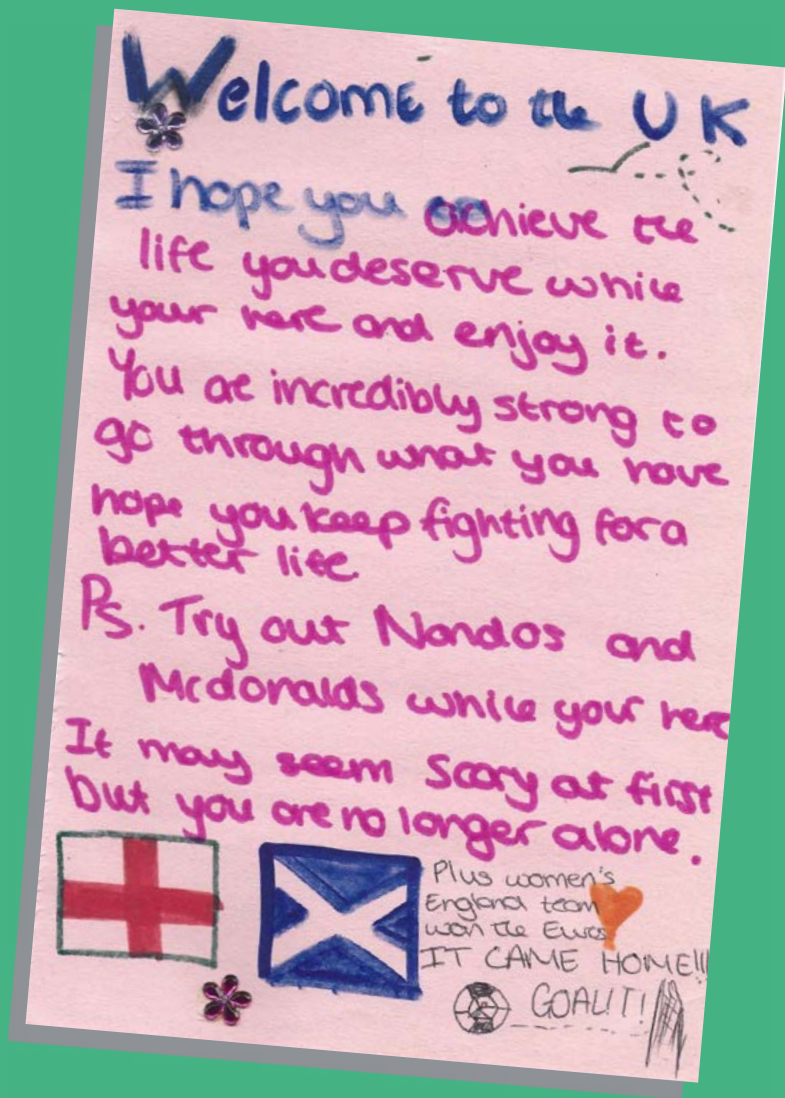 Welcome to the UK
I hope you achieve the
life you deserve while
your here and enjoy it.
You are incredibly strong to
go through what you have
hope you keep fighting for a
better life
PS. Try out Nandos and
Mcdonalds while your here
It may seem scary at first
but you are no longer alone.
Plus women's
England team
won the Euros
IT CAME HOME!!!
GOAL!T!